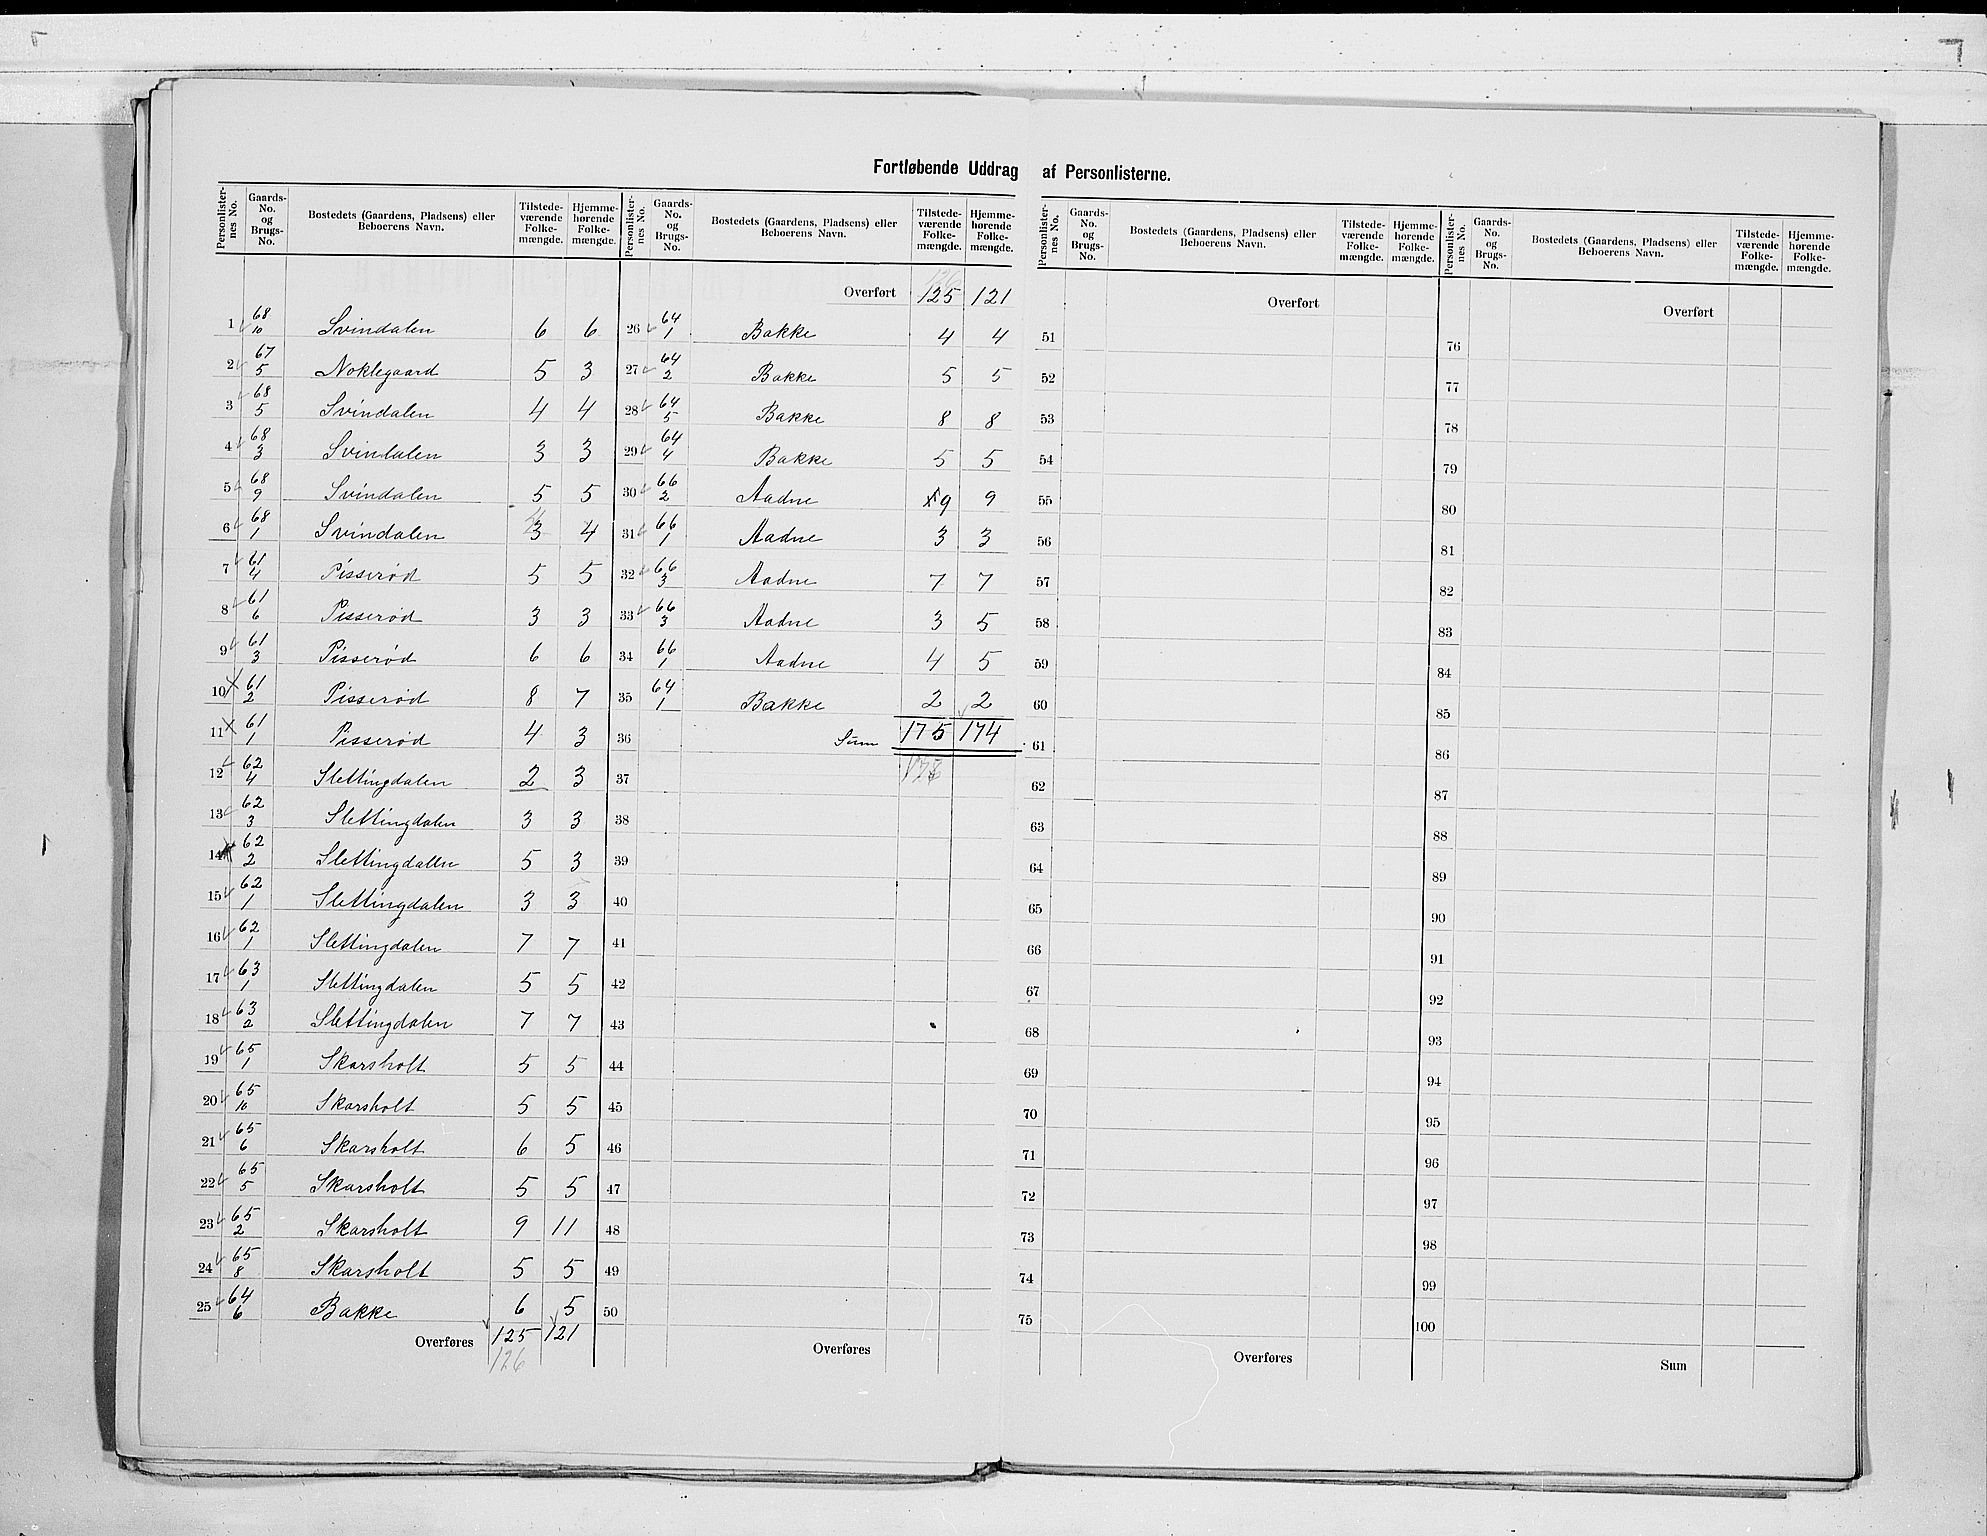 Fortløbende Uddrag af Personlisterne.
Personlister-nes No. | Gaards-No. og Brugs-No. | Bostedets (Gaardens, Pladsens) eller Beboerens Navn. | Tilstede-værende Folke-mængde. | Hjemme-hørende Folke-mængde.
1 68/10 Svindalen 6 6
2 67/5 Noklegaard 5 3
3 68/5 Svindalen 4 4
4 68/3 Svindalen 3 3
5 68/9 Svindalen 5 5
6 68/1 Svindalen 3 4
7 61/4 Pisserød 5 5
8 61/6 Pisserød 3 3
9 61/3 Pisserød 6 6
10 61/2 Pisserød 8 7
11 61/1 Pisserød 4 3
12 62/4 Slettingdalen 2 3
13 62/3 Slettingdalen 3 3
14 62/2 Slettingdalen 5 3
15 62/1 Slettingdalen 3 3
16 62/1 Slettingdalen 7 7
17 63/1 Slettingdalen 5 5
18 63/2 Slettingdalen 7 7
19 65/1 Skarsholt 5 5
20 65/10 Skarsholt 5 5
21 65/6 Skarsholt 6 5
22 65/5 Skarsholt 5 5
23 65/2 Skarsholt 9 11
24 65/8 Skarsholt 5 5
25 64/6 Bakke 6 5
Overføres 125 121
126
Personlister-nes No. | Gaards-No. og Brugs-No. | Bostedets (Gaardens, Pladsens) eller Beboerens Navn. | Tilstede-værende Folke-mængde. | Hjemme-hørende Folke-mængde.
126
Overført 125 121
26 64/1 Bakke 4 4
27 64/2 Bakke 5 5
28 64/5 Bakke 8 8
29 64/4 Bakke 5 5
30 66/2 Aadne 9 9
31 66/1 Aadne 3 3
32 66/3 Aadne 7 7
33 66/3 Aadne 3 5
34 66/1 Aadne 4 5
35 64/1 Bakke 2 2
36 Sum 175 174
37
38
39
40
41
42
43
44
45
46
47
48
49
50
Overføres
Personlister-nes No. | Gaards-No. og Brugs-No. | Bostedets (Gaardens, Pladsens) eller Beboerens Navn. | Tilstede-værende Folke-mængde. | Hjemme-hørende Folke-mængde.
Overført
51
52
53
54
55
56
57
58
59
60
61
62
63
64
65
66
67
68
69
70
71
72
73
74
75
Overføres
Personlister-nes No. | Gaards-No. og Brugs-No. | Bostedets (Gaardens, Pladsens) eller Beboerens Navn. | Tilstede-værende Folke-mængde. | Hjemme-hørende Folke-mængde.
Overført
76
77
78
79
80
81
82
83
84
85
86
87
88
89
90
91
92
93
94
95
96
97
98
99
100
Sum